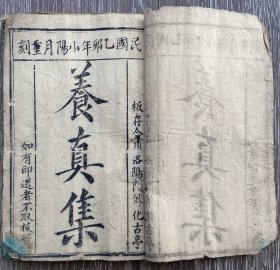 民國乙卯年小陽月重刻
板存合肥洛陽門外化古亭
養真集
如有印送者不取板資